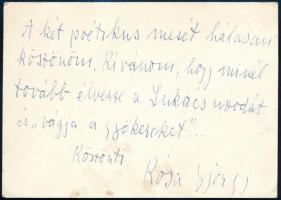 A két poétikus mesét hálásan
köszönöm. Kívánom, hogy minél
tovább élvezze a Lukács uszodát
és „vágja a gyökereket"...
Köszönti
Kósa György